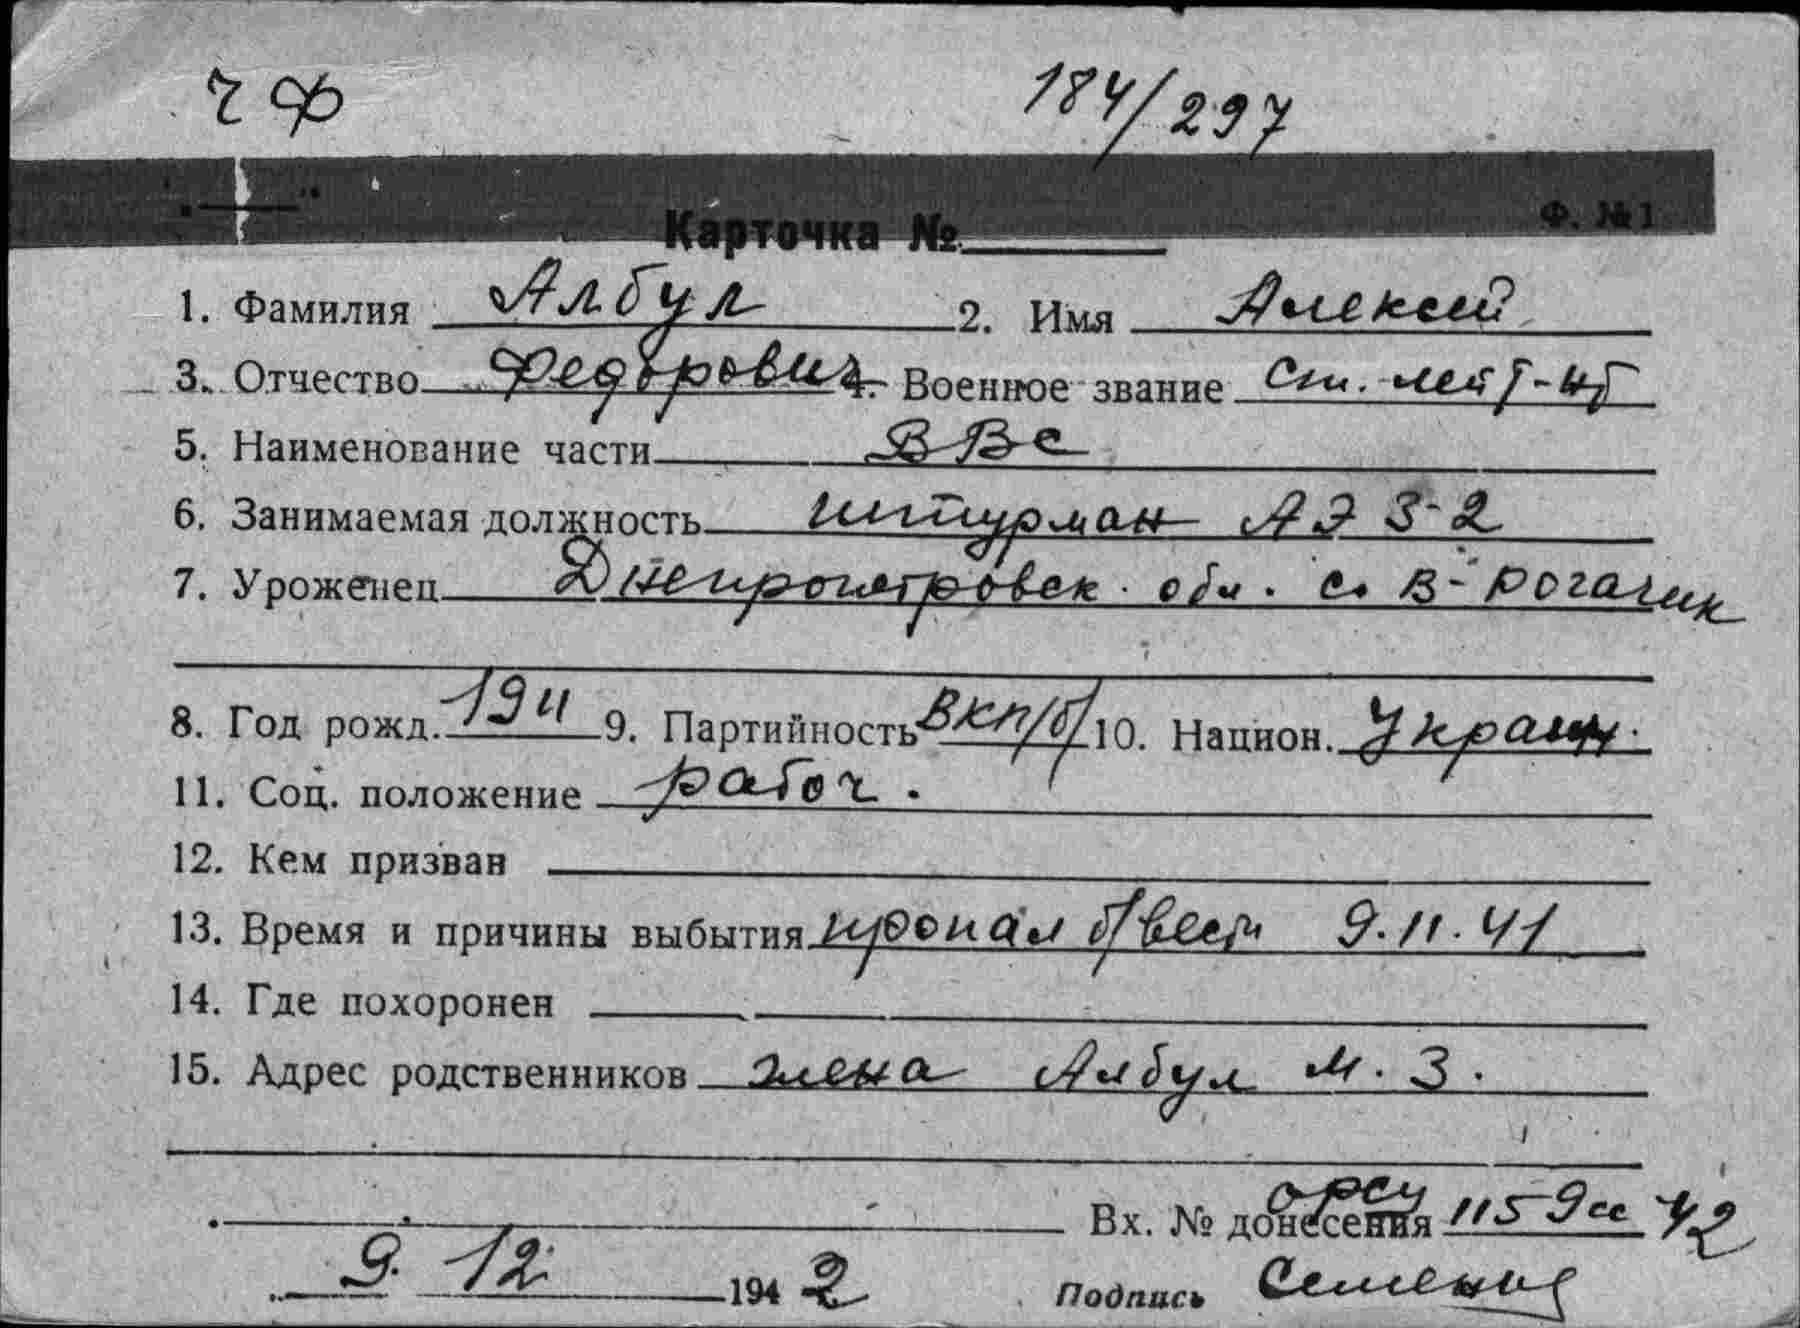 ЧФ 184/297
Ф. №1
Карточка №
1. Фамилия Албул 2. Имя Алексей
3. Отчество Федорович 4. Военное звание Ст. лейт-нт
5. Наименование части ВВС
6. Занимаемая должность штурман АЭ 3-2
7. Уроженец Днепропетровск. обл. с. В-Рогачик
8. Год рожд. 1911 9. Партийность ВКП/б/ 10. Национ. Украин.
11. Соц. положение рабоч.
12. Кем призван
13. Время и причины выбытия пропал б/вести 9.11.41
14. Где похоронен
15. Адрес родственников жена Албул М. З.
орсу
Вх. № донесения 1159сс 42
9. 12 1942 Подпись